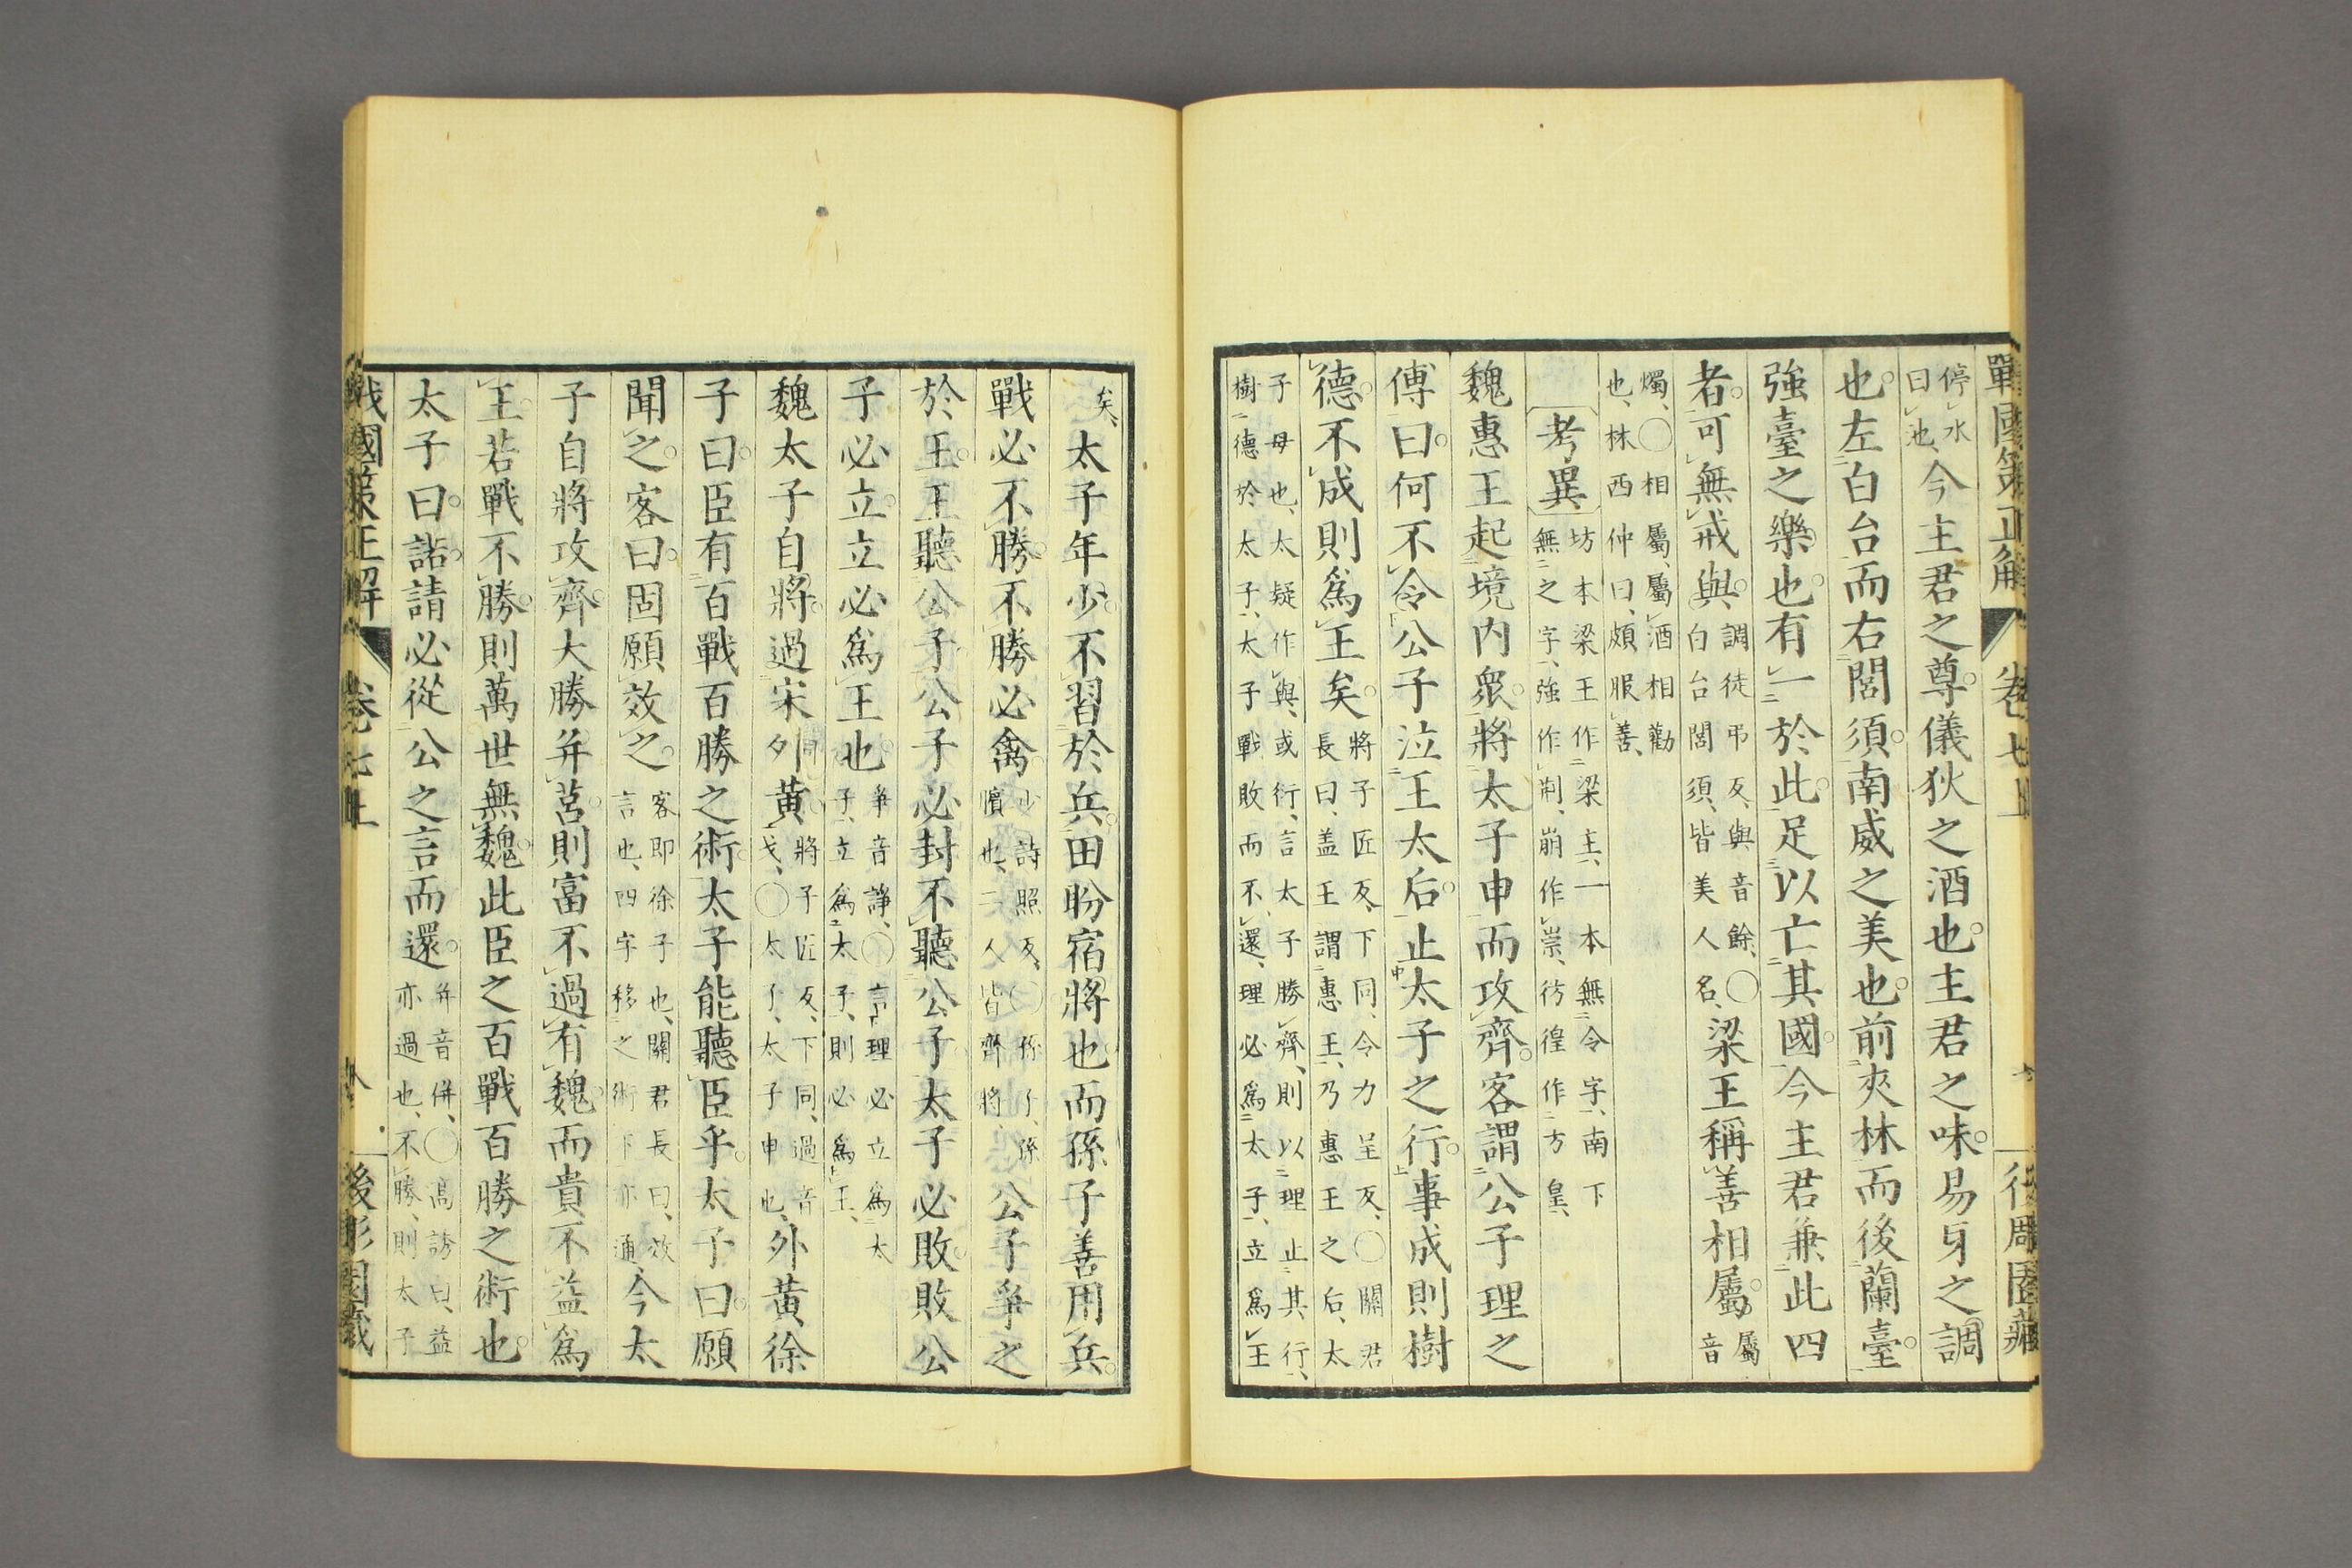 戰國策正解 卷七上
停水曰池今主君之尊儀狄之酒也主君之味易牙之調
也左白台而右閭須南威之美也前夾林而後蘭臺
強臺之樂也有一於此足以亡其國今主君兼此四
者可無戒與調徒弔反與音餘○白台閭須皆美人名梁王稱善相屬屬音
燭○相屬屬酒相勸也林西仲曰頗服善
考異坊本梁王作梁主一本無令字南下無之字強作荆崩作崇彷徨作方皇
魏惠王起境内衆將太子申而攻齊客謂公子理之
傅曰何不令公子泣王太后止太子之行事成則樹
德不成則爲王矣將子匠反下同令力呈反○關君長曰盖王謂惠王乃惠王之后太
子母也太疑作與或行言太子勝齊則以理止其行樹德於太子太子戰敗而不還理必爲太子立爲王
矣太子年少不習於兵田盼宿將也而孫子善用兵
戰必不勝不勝必禽少詩照反○孫子孫臏也二人皆齊將公子爭之
於王王聽公子公子必封不聽公子太子必敗敗公
子必立立必爲王也爭音諍○言理必立爲太子立爲太子則必爲王
魏太子自將過宋外黃將子匠反下同過音戈○太子太子申也外黃徐
子曰臣有百戰百勝之術太子能聽臣乎太子曰願
聞之客曰固願效之客即徐子也關君長曰效言也四字移之術下亦通今太
子自將攻齊大勝并莒則富不過有魏而貴不益爲
王若戰不勝則萬世無魏此臣之百戰百勝之術也
太子曰諾請必從公之言而還并音併○高誘曰益亦過也不勝則太子
戰國策正解 卷七上 八 後彫園藏